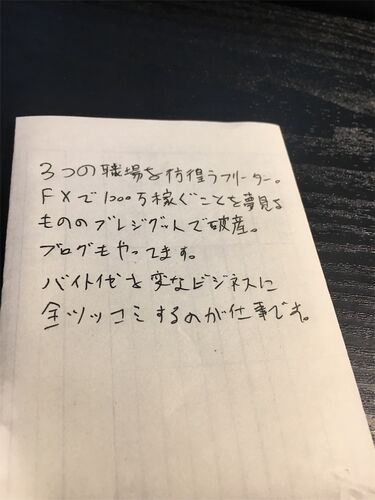 3つの職場を彷徨うフリーター。
FXで1200万稼ぐことを夢見る
もののブレジグットで破産。
ブログもやってます。
バイト代を変なビジネスに
全ツッコミするのが仕事です。